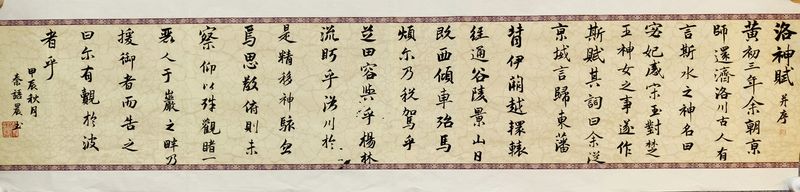 洛神賦 并序
黃初三年余朝京
師還濟洛川古人有
言斯水之神名曰
宓妃感宋玉對楚
王神女之事遂作
斯賦其詞曰余從
京域言歸東藩
背伊闕越轘轅
經通谷陵景山日
既西傾車殆馬
煩尔乃稅駕乎
芝田容與乎楊林
流眄乎洛川於
是精移神駭忽
焉思散俯則未
察仰以殊觀睹一
麗人于巖之畔乃
援御者而告之
曰尔有覿於彼
者乎
甲辰秋月
秦 晨書